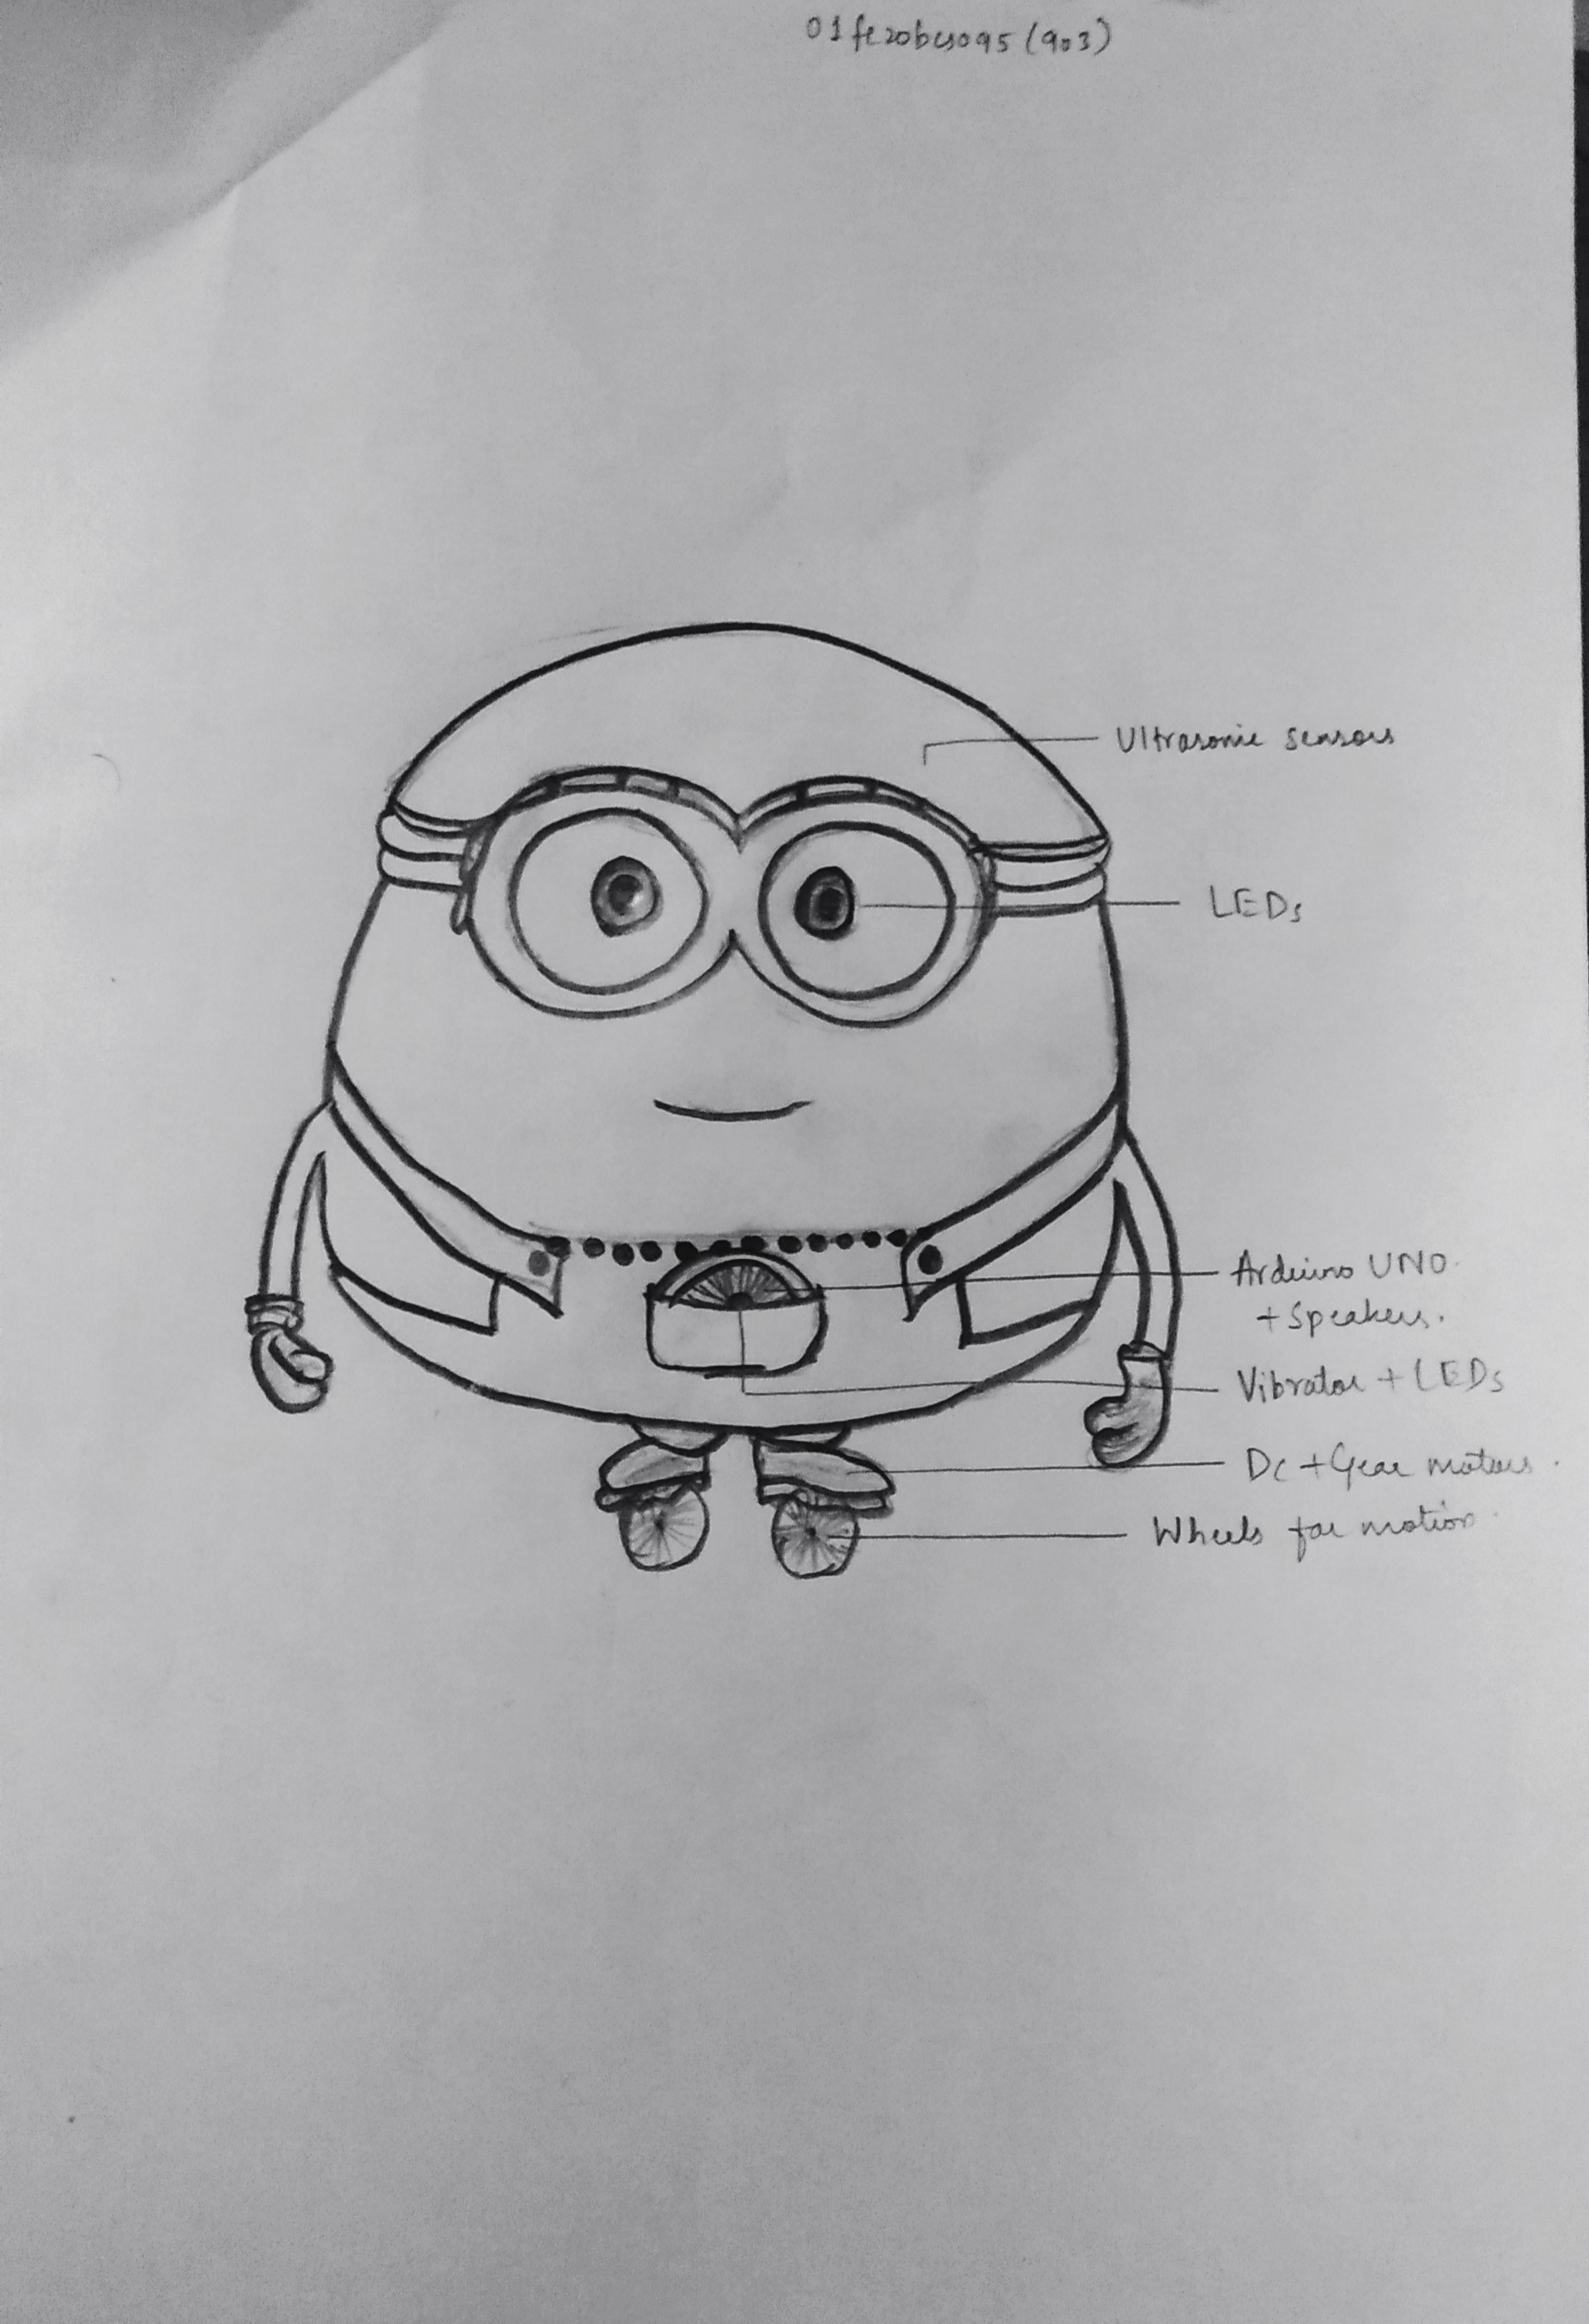 01fe20bcs095 (903)
Ultrasonic sensors
LEDs
Arduino UNO
+ Speakers.
Vibrator + LEDs
Dc + Gear motors.
Wheels for motion